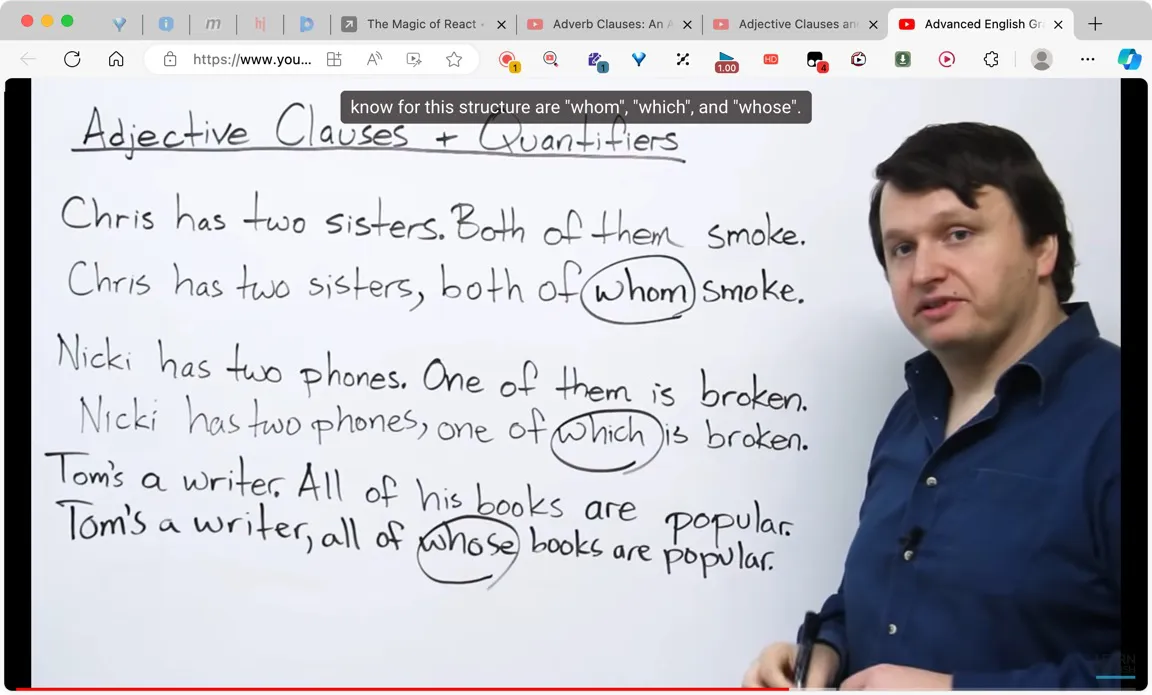 The Magic of React
Adverb Clauses: An A
Adjective Clauses an
Advanced English Gr
https://www.you...
1
1
1.00
HD
4
know for this structure are "whom", "which", and "whose".
Adjective Clauses + Quantifiers
Chris has two sisters. Both of them smoke.
Chris has two sisters, both of whom smoke.
Nicki has two phones. One of them is broken.
Nicki has two phones, one of which is broken.
Tom's a writer. All of his books are popular.
Tom's a writer, all of whose books are popular.